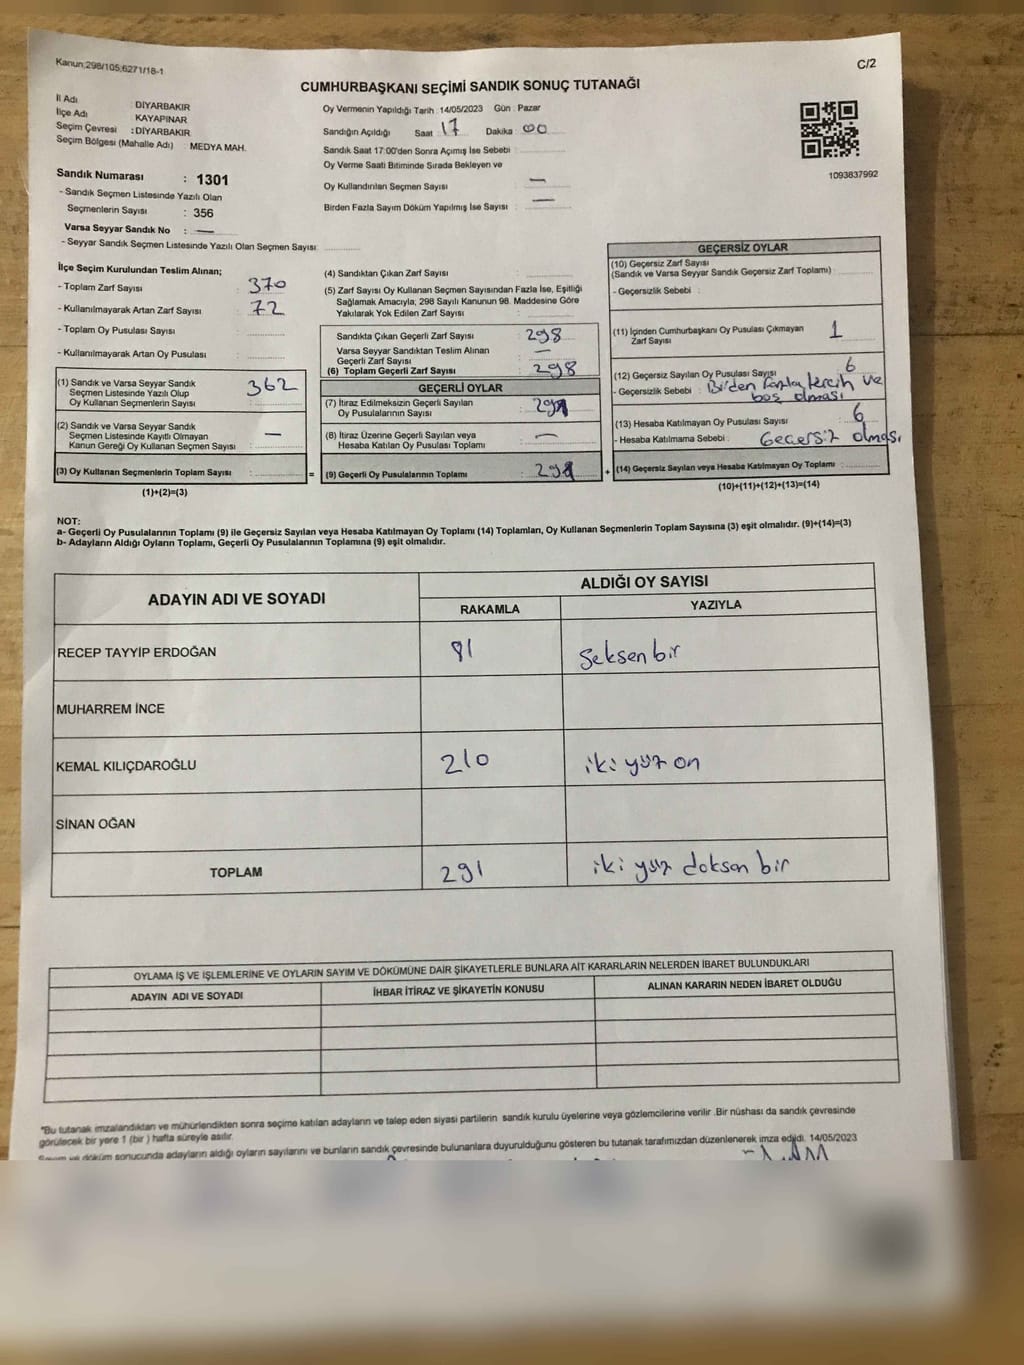 Kanun;298/105,6271/18-1
C/2
CUMHURBAŞKANI SEÇİMİ SANDIK SONUÇ TUTANAĞI
İl Adı : DİYARBAKIR
İlçe Adı KAYAPINAR
Seçim Çevresi : DİYARBAKIR
Seçim Bölgesi (Mahalle Adı) : MEDYA MAH.
Sandık Numarası : 1301
- Sandık Seçmen Listesinde Yazılı Olan
Seçmenlerin Sayısı : 356
Varsa Seyyar Sandık No : —
- Seyyar Sandık Seçmen Listesinde Yazılı Olan Seçmen Sayısı:
Oy Vermenin Yapıldığı Tarih : 14/05/2023 Gün : Pazar
Sandığın Açıldığı Saat 17 Dakika : 00
Sandık Saat 17:00'den Sonra Açımış İse Sebebi :
Oy Verme Saati Bitiminde Sırada Bekleyen ve
Oy Kullandırılan Seçmen Sayısı : —
Birden Fazla Sayım Döküm Yapılmış İse Sayısı : —
1093837992
İlçe Seçim Kurulundan Teslim Alınan;
- Toplam Zarf Sayısı : 370
- Kullanılmayarak Artan Zarf Sayısı : 72
- Toplam Oy Pusulası Sayısı :
- Kullanılmayarak Artan Oy Pusulası :
(1) Sandık ve Varsa Seyyar Sandık
Seçmen Listesinde Yazılı Olup
Oy Kullanan Seçmenlerin Sayısı : 362
(2) Sandık ve Varsa Seyyar Sandık
Seçmen Listesinde Kayıtlı Olmayan
Kanun Gereği Oy Kullanan Seçmen Sayısı : —
(3) Oy Kullanan Seçmenlerin Toplam Sayısı : =
(1)+(2)=(3)
(4) Sandıktan Çıkan Zarf Sayısı :
(5) Zarf Sayısı Oy Kullanan Seçmen Sayısından Fazla İse, Eşitliği
Sağlamak Amacıyla; 298 Sayılı Kanunun 98. Maddesine Göre
Yakılarak Yok Edilen Zarf Sayısı :
Sandıkta Çıkan Geçerli Zarf Sayısı : 298
Varsa Seyyar Sandıktan Teslim Alınan
Geçerli Zarf Sayısı : —
(6) Toplam Geçerli Zarf Sayısı : 298
GEÇERLİ OYLAR
(7) İtiraz Edilmeksizin Geçerli Sayılan
Oy Pusulalarının Sayısı : 291
(8) İtiraz Üzerine Geçerli Sayılan veya
Hesaba Katılan Oy Pusulası Toplamı : —
(9) Geçerli Oy Pusulalarının Toplamı : 291 +
GEÇERSİZ OYLAR
(10) Geçersiz Zarf Sayısı
(Sandık ve Varsa Seyyar Sandık Geçersiz Zarf Toplamı) :
- Geçersizlik Sebebi :
(11) İçinden Cumhurbaşkanı Oy Pusulası Çıkmayan
Zarf Sayısı : 1
(12) Geçersiz Sayılan Oy Pusulası Sayısı : 6
- Geçersizlik Sebebi : Birden fazla tercih ve
boş olması
(13) Hesaba Katılmayan Oy Pusulası Sayısı : 6
- Hesaba Katılmama Sebebi : Geçersiz olması
(14) Geçersiz Sayılan veya Hesaba Katılmayan Oy Toplamı :
(10)+(11)+(12)+(13)=(14)
NOT:
a- Geçerli Oy Pusulalarının Toplamı (9) ile Geçersiz Sayılan veya Hesaba Katılmayan Oy Toplamı (14) Toplamları, Oy Kullanan Seçmenlerin Toplam Sayısına (3) eşit olmalıdır. (9)+(14)=(3)
b- Adayların Aldığı Oyların Toplamı, Geçerli Oy Pusulalarının Toplamına (9) eşit olmalıdır.
ADAYIN ADI VE SOYADI
ALDIĞI OY SAYISI
RAKAMLA YAZIYLA
RECEP TAYYİP ERDOĞAN 81 Seksen bir
MUHARREM İNCE
KEMAL KILIÇDAROĞLU 210 iki yüz on
SİNAN OĞAN
TOPLAM 291 iki yüz doksan bir
OYLAMA İŞ VE İŞLEMLERİNE VE OYLARIN SAYIM VE DÖKÜMÜNE DAİR ŞİKAYETLERLE BUNLARA AİT KARARLARIN NELERDEN İBARET BULUNDUKLARI
ADAYIN ADI VE SOYADI İHBAR İTİRAZ VE ŞİKAYETİN KONUSU ALINAN KARARIN NEDEN İBARET OLDUĞU
*Bu tutanak imzalandıktan ve mühürlendikten sonra seçime katılan adayların ve talep eden siyasi partilerin sandık kurulu üyelerine veya gözlemcilerine verilir .Bir nüshası da sandık çevresinde
görülecek bir yere 1 (bir ) hafta süreyle asılır.
Sayım ve döküm sonucunda adayların aldığı oyların sayılarını ve bunların sandık çevresinde bulunanlara duyurulduğunu gösteren bu tutanak tarafımızdan düzenlenerek imza edildi. 14/05/2023